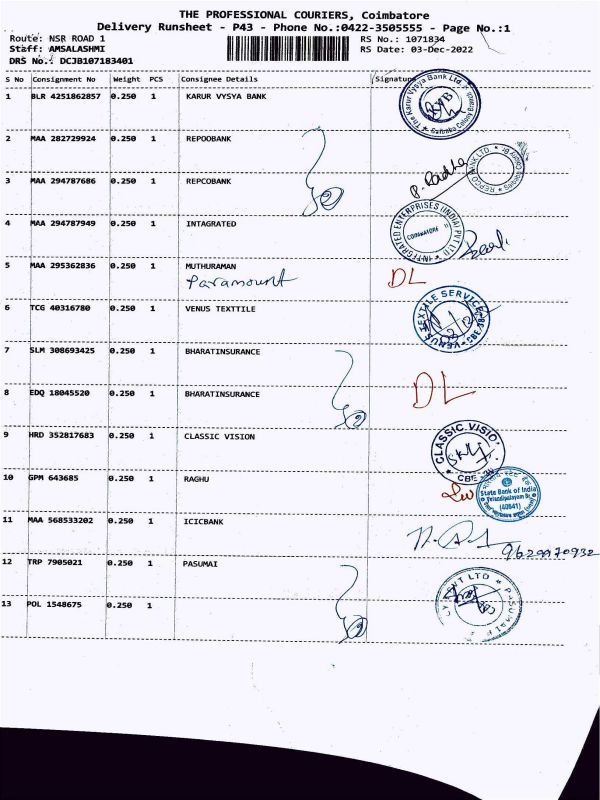 THE PROFESSIONAL COURIERS, Coimbatore
Delivery Runsheet - P43 - Phone No.:0422-3505555 - Page No.:1
Route: NSR ROAD 1 RS No.: 1071834
Staff: AMSALASHMI RS Date: 03-Dec-2022
DRS No.: DCJB107183401
S No Consignment No Weight PCS Consignee Details Signature
1 BLR 4251862857 0.250 1 KARUR VYSYA BANK
The Karur Vysya Bank Ltd.
2 MAA 282729924 0.250 1 REPOOBANK
3 MAA 294787686 0.250 1 REPCOBANK
P. Radha
4 MAA 294787949 0.250 1 INTAGRATED
INTEGRATED ENTERPRISES (INDIA) PVT LTD
COIMBATORE
5 MAA 295362836 1 MUTHURAMAN
Paramount DL
6 TCG 40316780 0.250 1 VENUS TEXTTILE
VENUS TEXTILE SERVICE
7 SLM 308693425 0.250 1 BHARATINSURANCE
8 EDQ 18045520 0.250 1 BHARATINSURANCE
DL
9 HRD 352817683 0.250 1 CLASSIC VISION
CLASSIC VISIO
CBE
10 GPM 643685 0.250 1 RAGHU
State Bank of India
(40641)
11 MAA 568533202 0.250 1 ICICBANK
9629970932
12 TRP 7905021 0.250 1 PASUMAI
13 POL 1548675 0.250 1